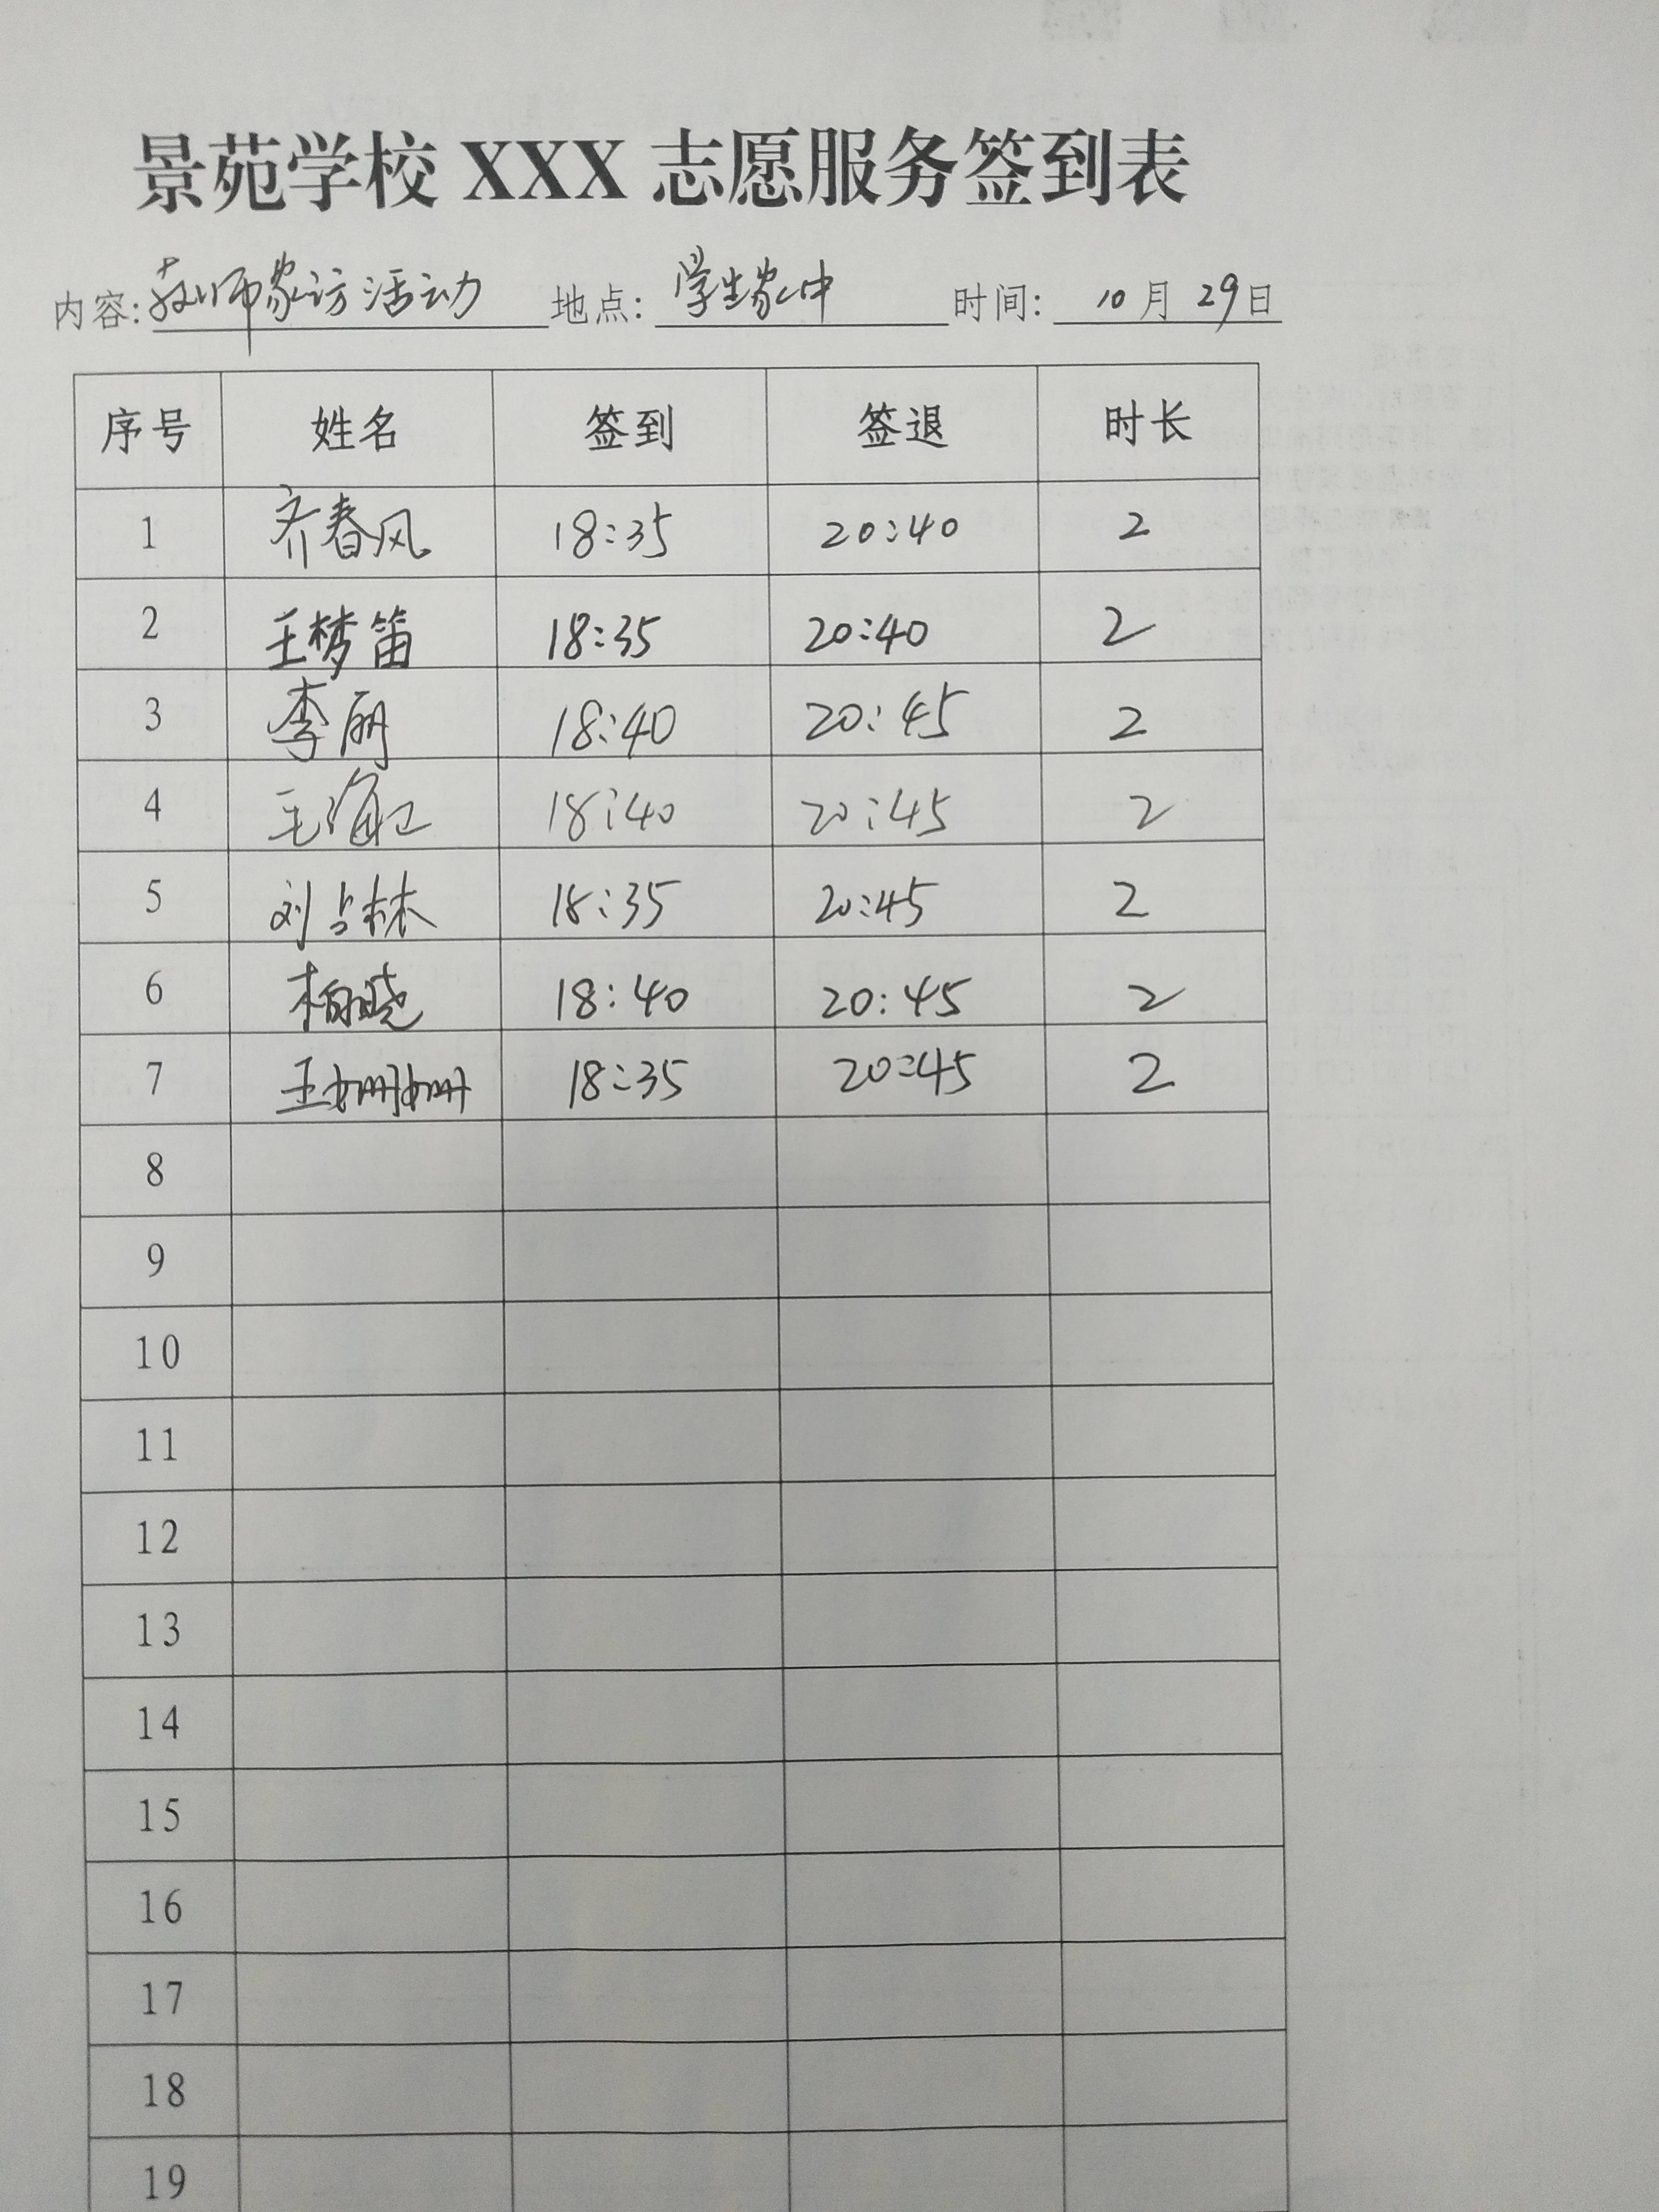 景苑学校 XXX 志愿服务签到表
内容: 教师家访活动 地点: 学生家中 时间: 10月29日
序号 姓名 签到 签退 时长
1 齐春风 18:35 20:40 2
2 王梦笛 18:35 20:40 2
3 李丽 18:40 20:45 2
4 18:40 20:45 2
5 刘占林 18:35 20:45 2
6 柏晓 18:40 20:45 2
7 王姗姗 18:35 20:45 2
8
9
10
11
12
13
14
15
16
17
18
19